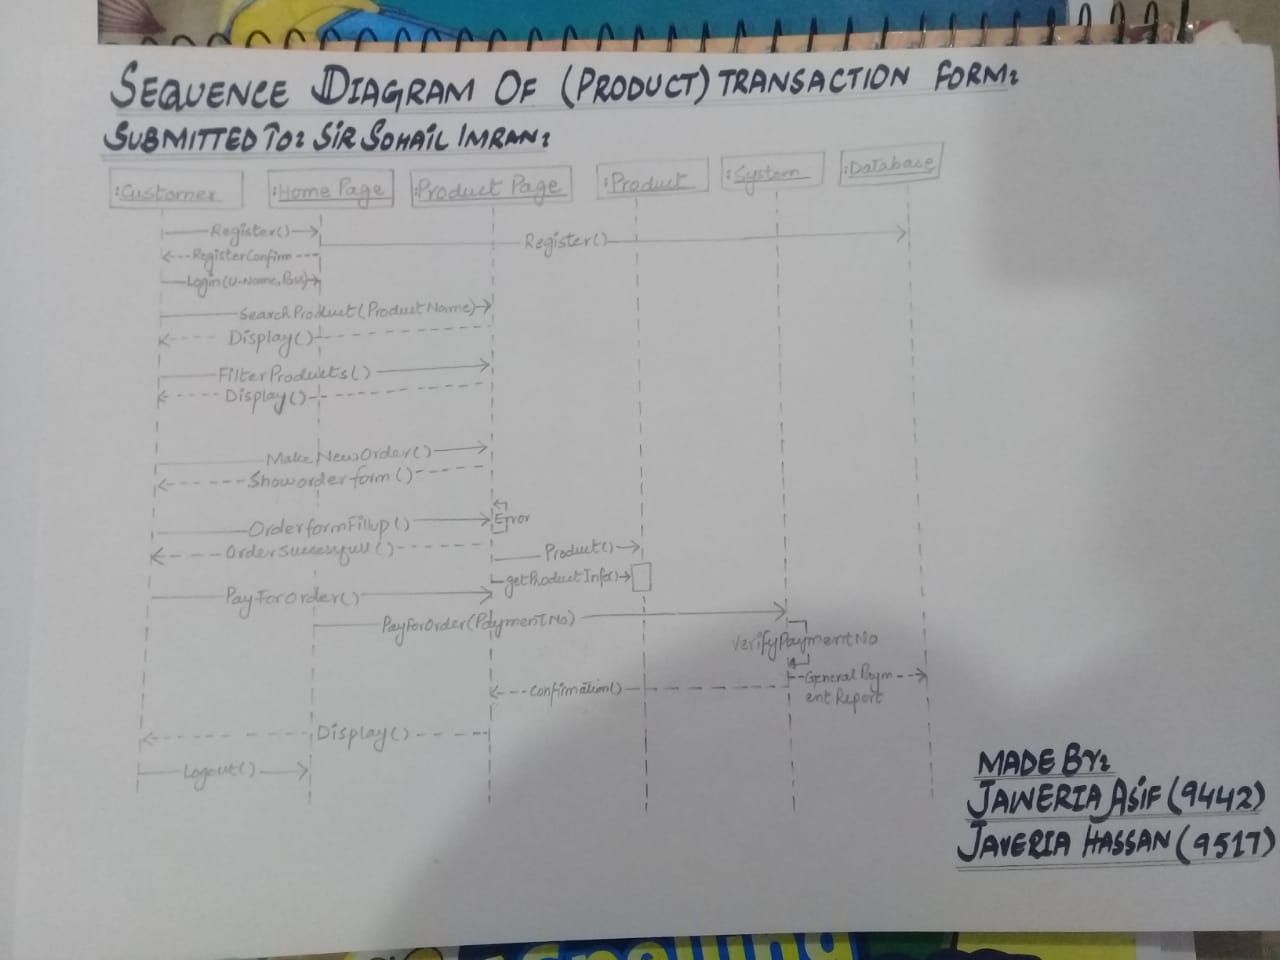 SEQUENCE DIAGRAM OF (PRODUCT) TRANSACTION FORM:
SUBMITTED TO: SIR SOHAIL IMRAN:
:Customer :Home Page :Product Page :Product :System :Database
Register()
Register()
RegisterConfirm
Login(U-Name, Pass)
SearchProduct(ProductName)
Display()
FilterProducts()
Display()
MakeNewOrder()
Showorderform()
OrderformFillup() Error
OrderSuccessfull()
Product()
getProductInfo()
PayForOrder()
PayForOrder(PaymentNo)
VerifyPaymentNo
General Paym
ent Report
Confirmation()
Display()
Logout()
MADE BY:
JAWERIA ASIF (9442)
JAVERIA HASSAN (9517)